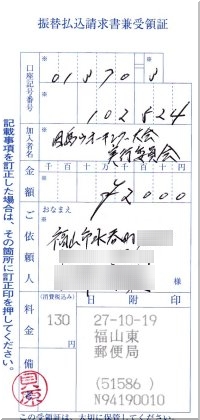 振替払込請求書兼受領証
口座記号番号
01370 8
102824
加入者名
因島ウォーキング大会
実行委員会
金額
千 百 十 万 千 百 十 円
¥2000
ご依頼人
おなまえ
福山市水呑町
料金
(消費税込み)
130 円
日附印
27-10-19
福山東
郵便局
(51586)
N94190010
備
この受領証は、大切に保管してください。
記載事項を訂正した場合は、その箇所に訂正印を押してください。